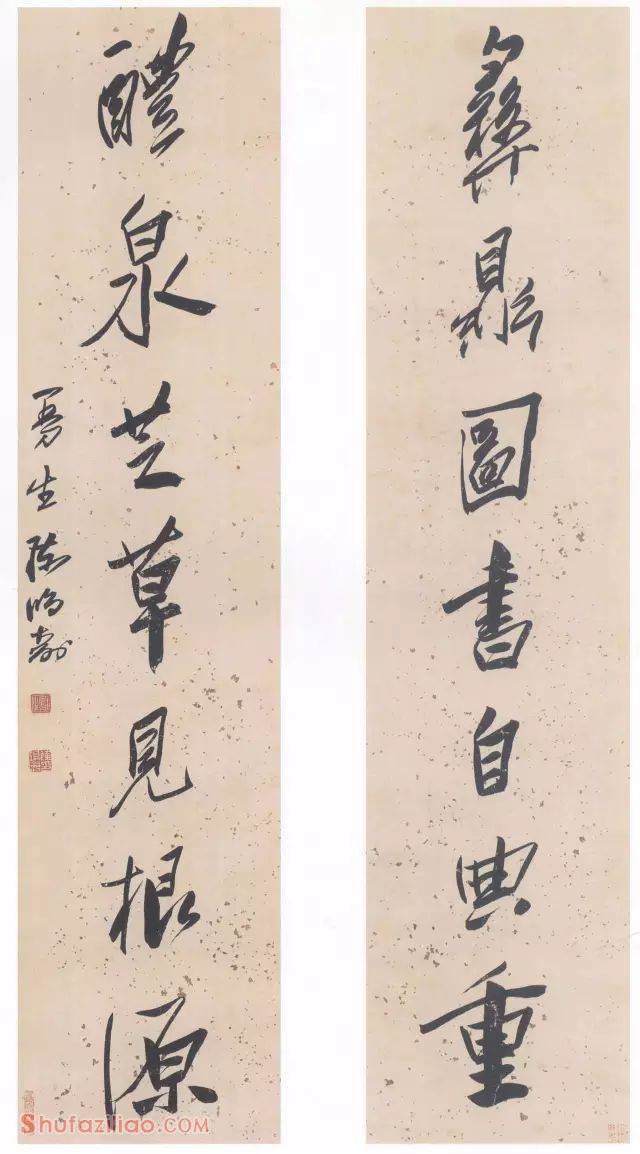 彝鼎圖書自典重
醴泉芝草見根源
曼生陳鴻壽
Shufaziliao.com